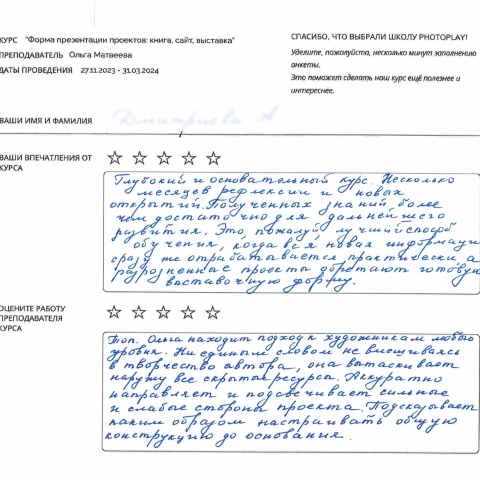 КУРС "Форма презентации проектов: книга, сайт, выставка"
ПРЕПОДАВАТЕЛЬ Ольга Матвеева
ДАТЫ ПРОВЕДЕНИЯ 27.11.2023 - 31.03.2024
СПАСИБО, ЧТО ВЫБРАЛИ ШКОЛУ PHOTOPLAY!
Уделите, пожалуйста, несколько минут заполнению
анкеты.
Это поможет сделать наш курс ещё полезнее и
интереснее.
ВАШИ ИМЯ И ФАМИЛИЯ Дмитриева А
ВАШИ ВПЕЧАТЛЕНИЯ ОТ
КУРСА
Глубокий и основательный курс. Несколько
месяцев рефлексии и новых
открытий. Полученных знаний более
чем достаточно для дальнейшего
развития. Это, пожалуй, лучший способ
обучения, когда вся новая информация
сразу же отрабатывается практически, а
разрозненные проекты обретают готовую
выставочную форму.
ОЦЕНИТЕ РАБОТУ
ПРЕПОДАВАТЕЛЯ
КУРСА
Топ. Ольга находит подход к художникам любого
уровня. Ни единым словом не вмешиваясь
в творчество автора, она вытаскивает
наружу все скрытые ресурсы. Аккуратно
направляет и подсвечивает сильные
и слабые стороны проекта. Подсказывает
каким образом настраивать общую
конструкцию до основания.